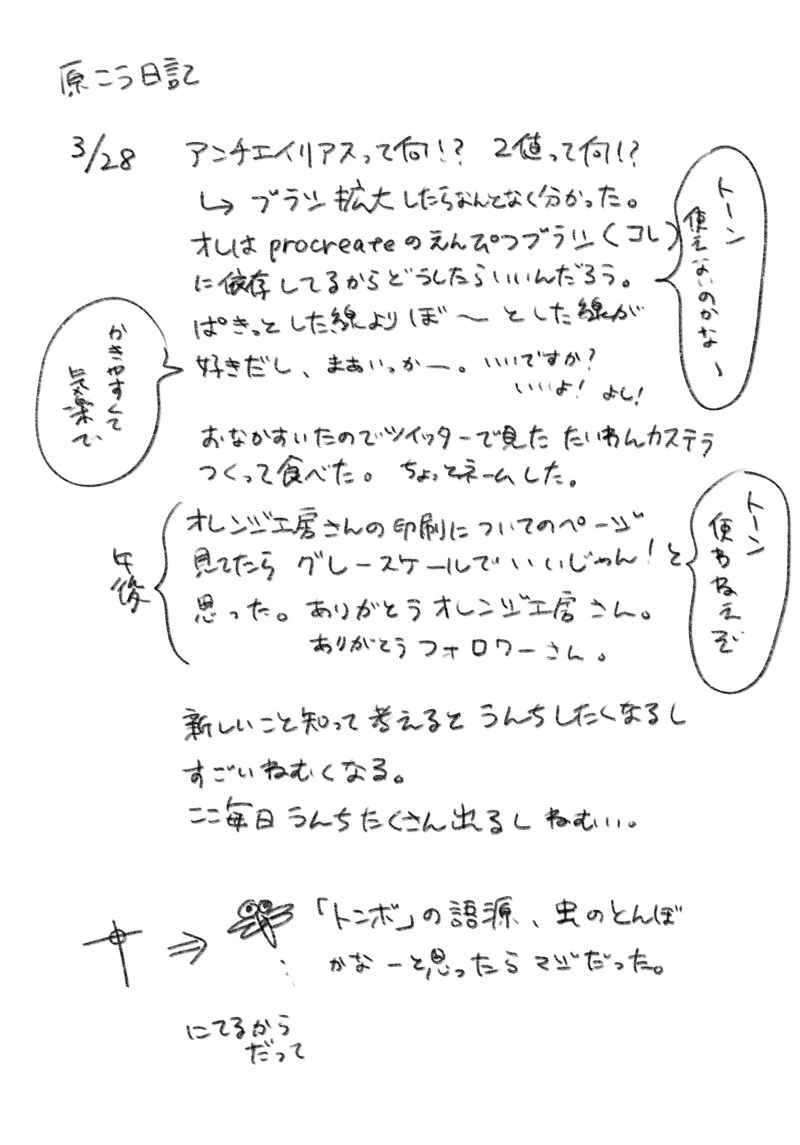 原こう日記
3/28
アンチエイリアスって何!? 2値って何!?
↳ ブラシ拡大したらなんとなく分かった。
オレはprocreateのえんぴつブラシ(コレ)
に依存してるからどうしたらいいんだろう。
ぱきっとした線よりぼ〜とした線が
好きだし、まあいっかー。いいですか?
いいよ! よし!
トーン
使えないのかな〜
かきやすくて
気楽で
おなかすいたのでツイッターで見たたいわんカステラ
つくって食べた。ちょっとネームした。
午後
オレンジ工房さんの印刷についてのページ
見てたらグレースケールでいいじゃん!と
思った。ありがとうオレンジ工房さん。
ありがとうフォロワーさん。
トーン
使わねえぞ
新しいこと知って考えるとうんちしたくなるし
すごいねむくなる。
ここ毎日うんちたくさん出るしねむい。
⇒
「トンボ」の語源、虫のとんぼ
かなーと思ったらマジだった。
にてるから
だって